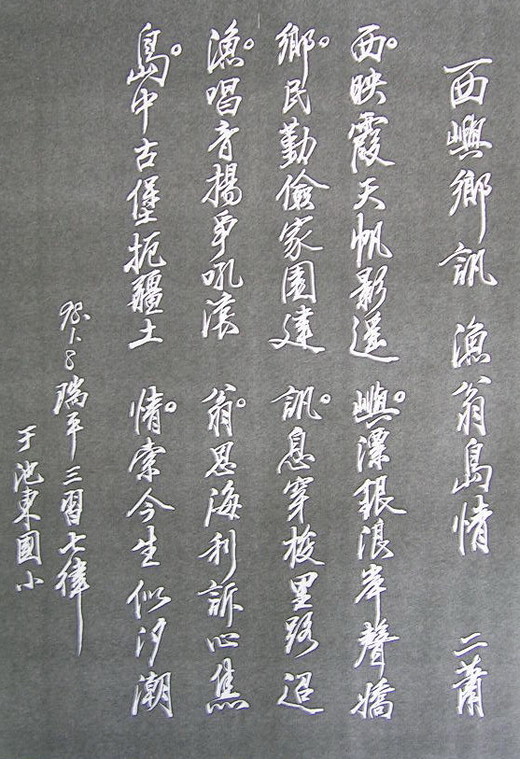 西嶼鄉訊 漁翁島情 二蕭
西映霞天帆影遥 嶼漂銀浪岸聲嬌
鄉民勤儉家園建 訊息穿梭里路迢
漁唱音揚爭吼浪 翁思海利訴心焦
島中古堡扼疆土 情索今生似汐潮
98.1.8 瑞平三習七律
于池東國小